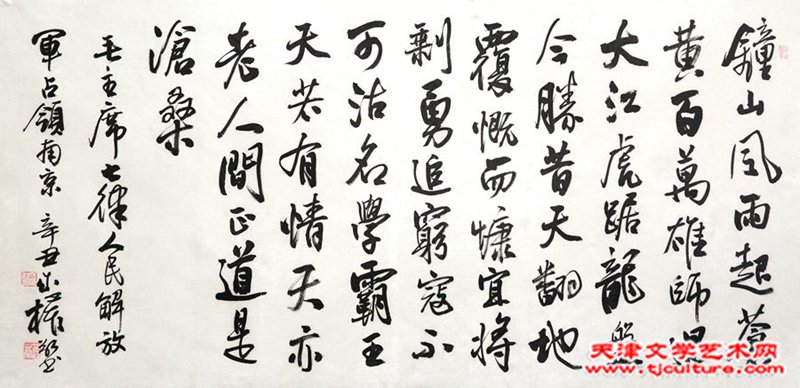 鐘山風雨起蒼
黃百萬雄師過
大江虎踞龍盤
今勝昔天翻地
覆慨而慷宜將
剩勇追窮寇不
可沽名學霸王
天若有情天亦
老人間正道是
滄桑
毛主席七律人民解放
軍占領南京 辛丑
天津文学艺术网
www.tjculture.com